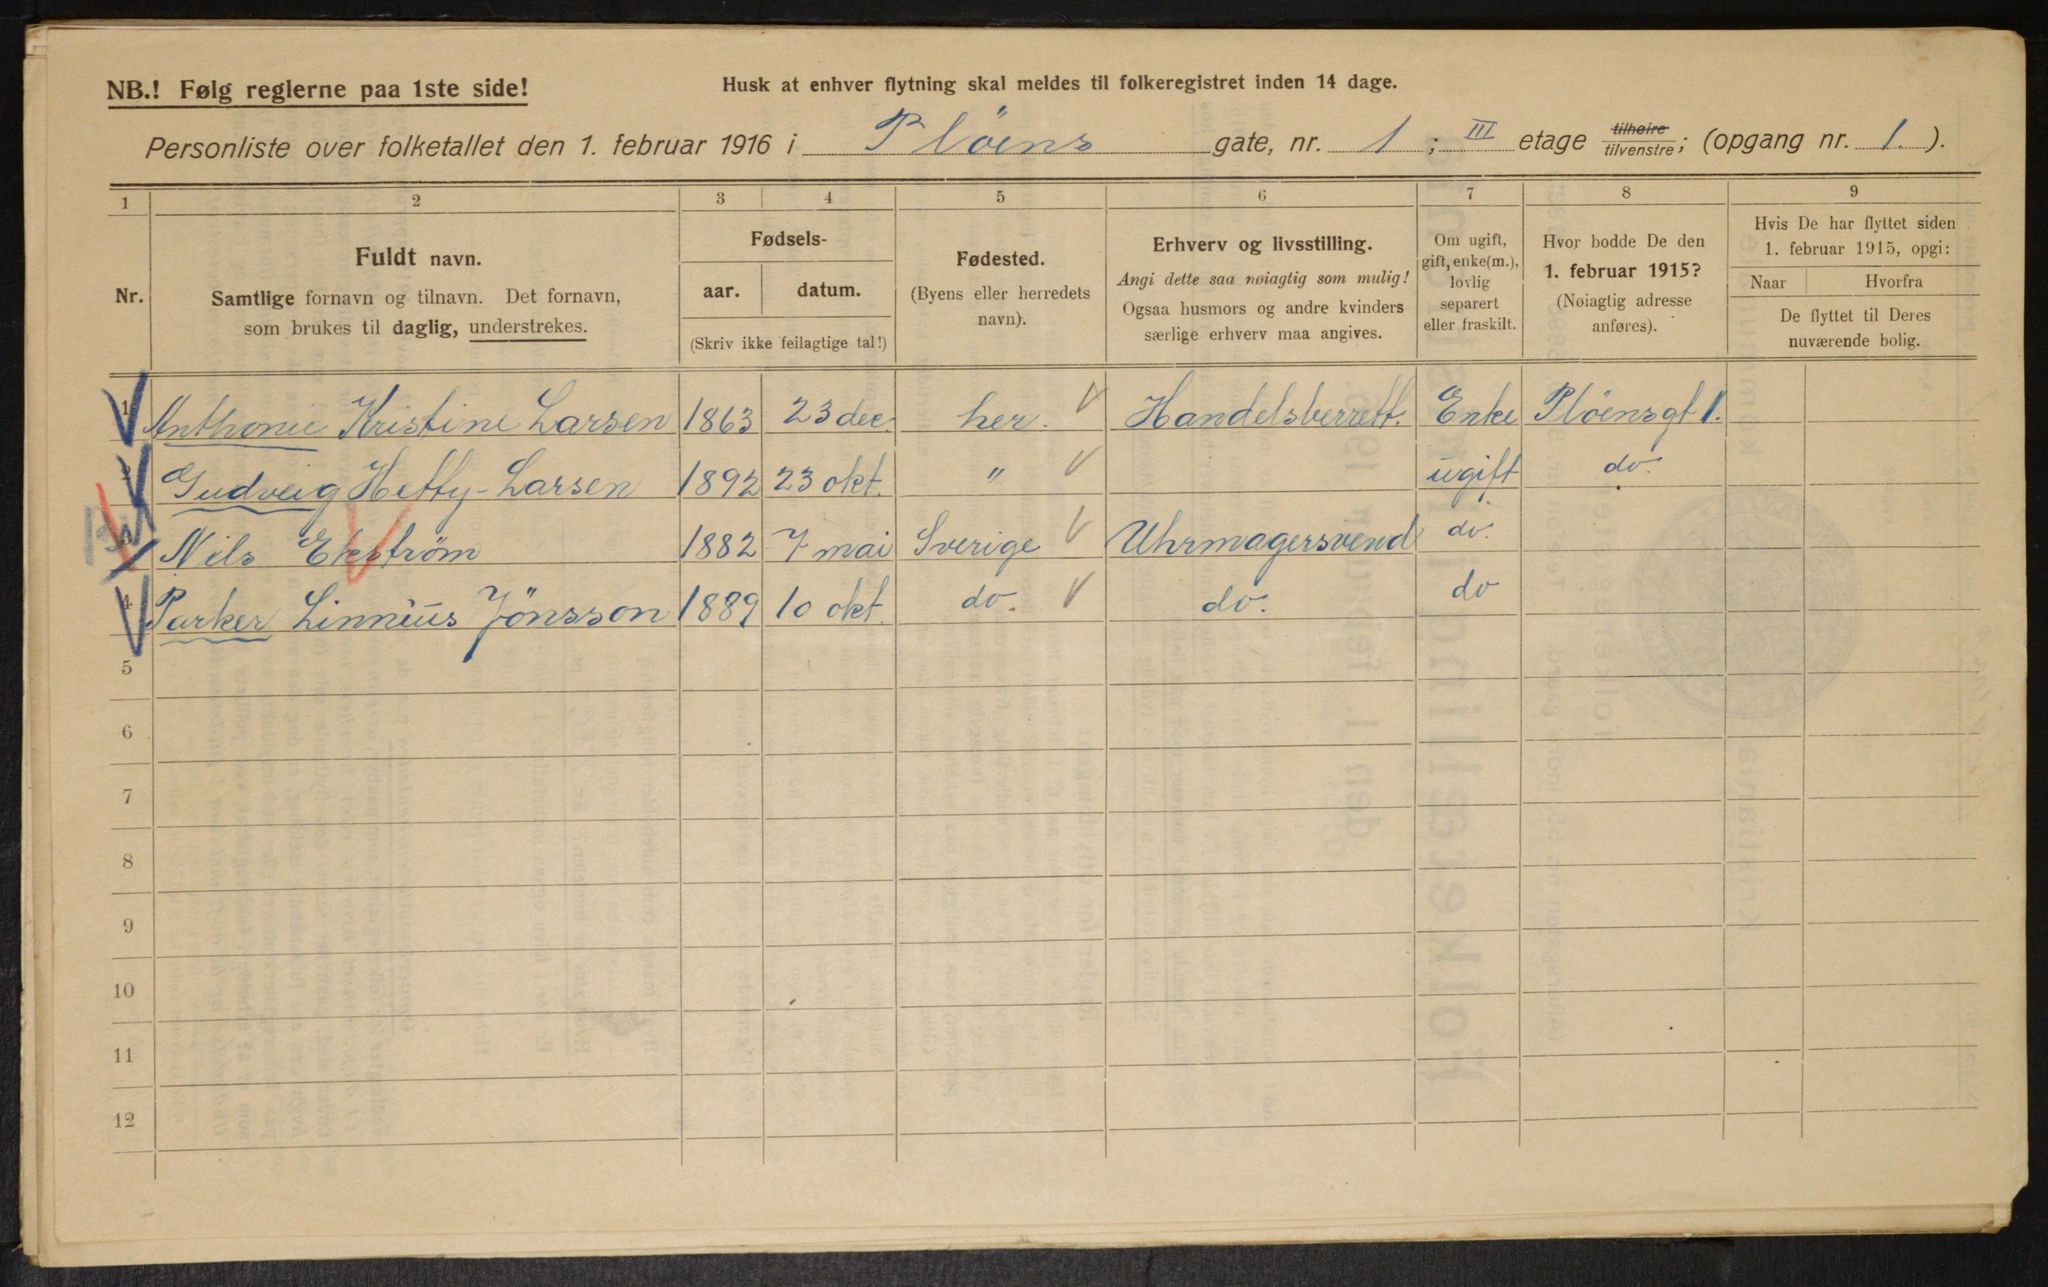 NB.! Følg reglerne paa 1ste side!
Husk at enhver flytning skal meldes til folkeregistret inden 14 dage.
Personliste over folketallet den 1. februar 1916 i Plöens gate, nr. 1 ; III etage tilhøire tilvenstre; (opgang nr. 1. ).
1 2 3 4 5 6 7 8 9
Nr.
Fuldt navn.
Samtlige fornavn og tilnavn. Det fornavn,
som brukes til daglig, understrekes.
Fødsels-
aar. datum.
(Skriv ikke feilagtige tal!)
Fødested.
(Byens eller herredets
navn).
Erhverv og livsstilling.
Angi dette saa nøiagtig som mulig!
Ogsaa husmors og andre kvinders
særlige erhverv maa angives.
Om ugift,
gift, enke(m.),
lovlig
separert
eller fraskilt.
Hvor bodde De den
1. februar 1915?
(Nøiagtig adresse
anføres).
Hvis De har flyttet siden
1. februar 1915, opgi:
Naar Hvorfra
De flyttet til Deres
nuværende bolig.
1 Anthonie Kristine Larsen 1863 23 dec. her. Handelsberrett. Enke Plöensgt 1.
2 Gudveig Hetty-Larsen 1892 23 okt. " ugift do.
3 Nils Ekström 1882 7 mai Sverige Uhrmagersvend do.
4 Parker Linneus Jönsson 1889 10 okt. do. do. do
5
6
7
8
9
10
11
12